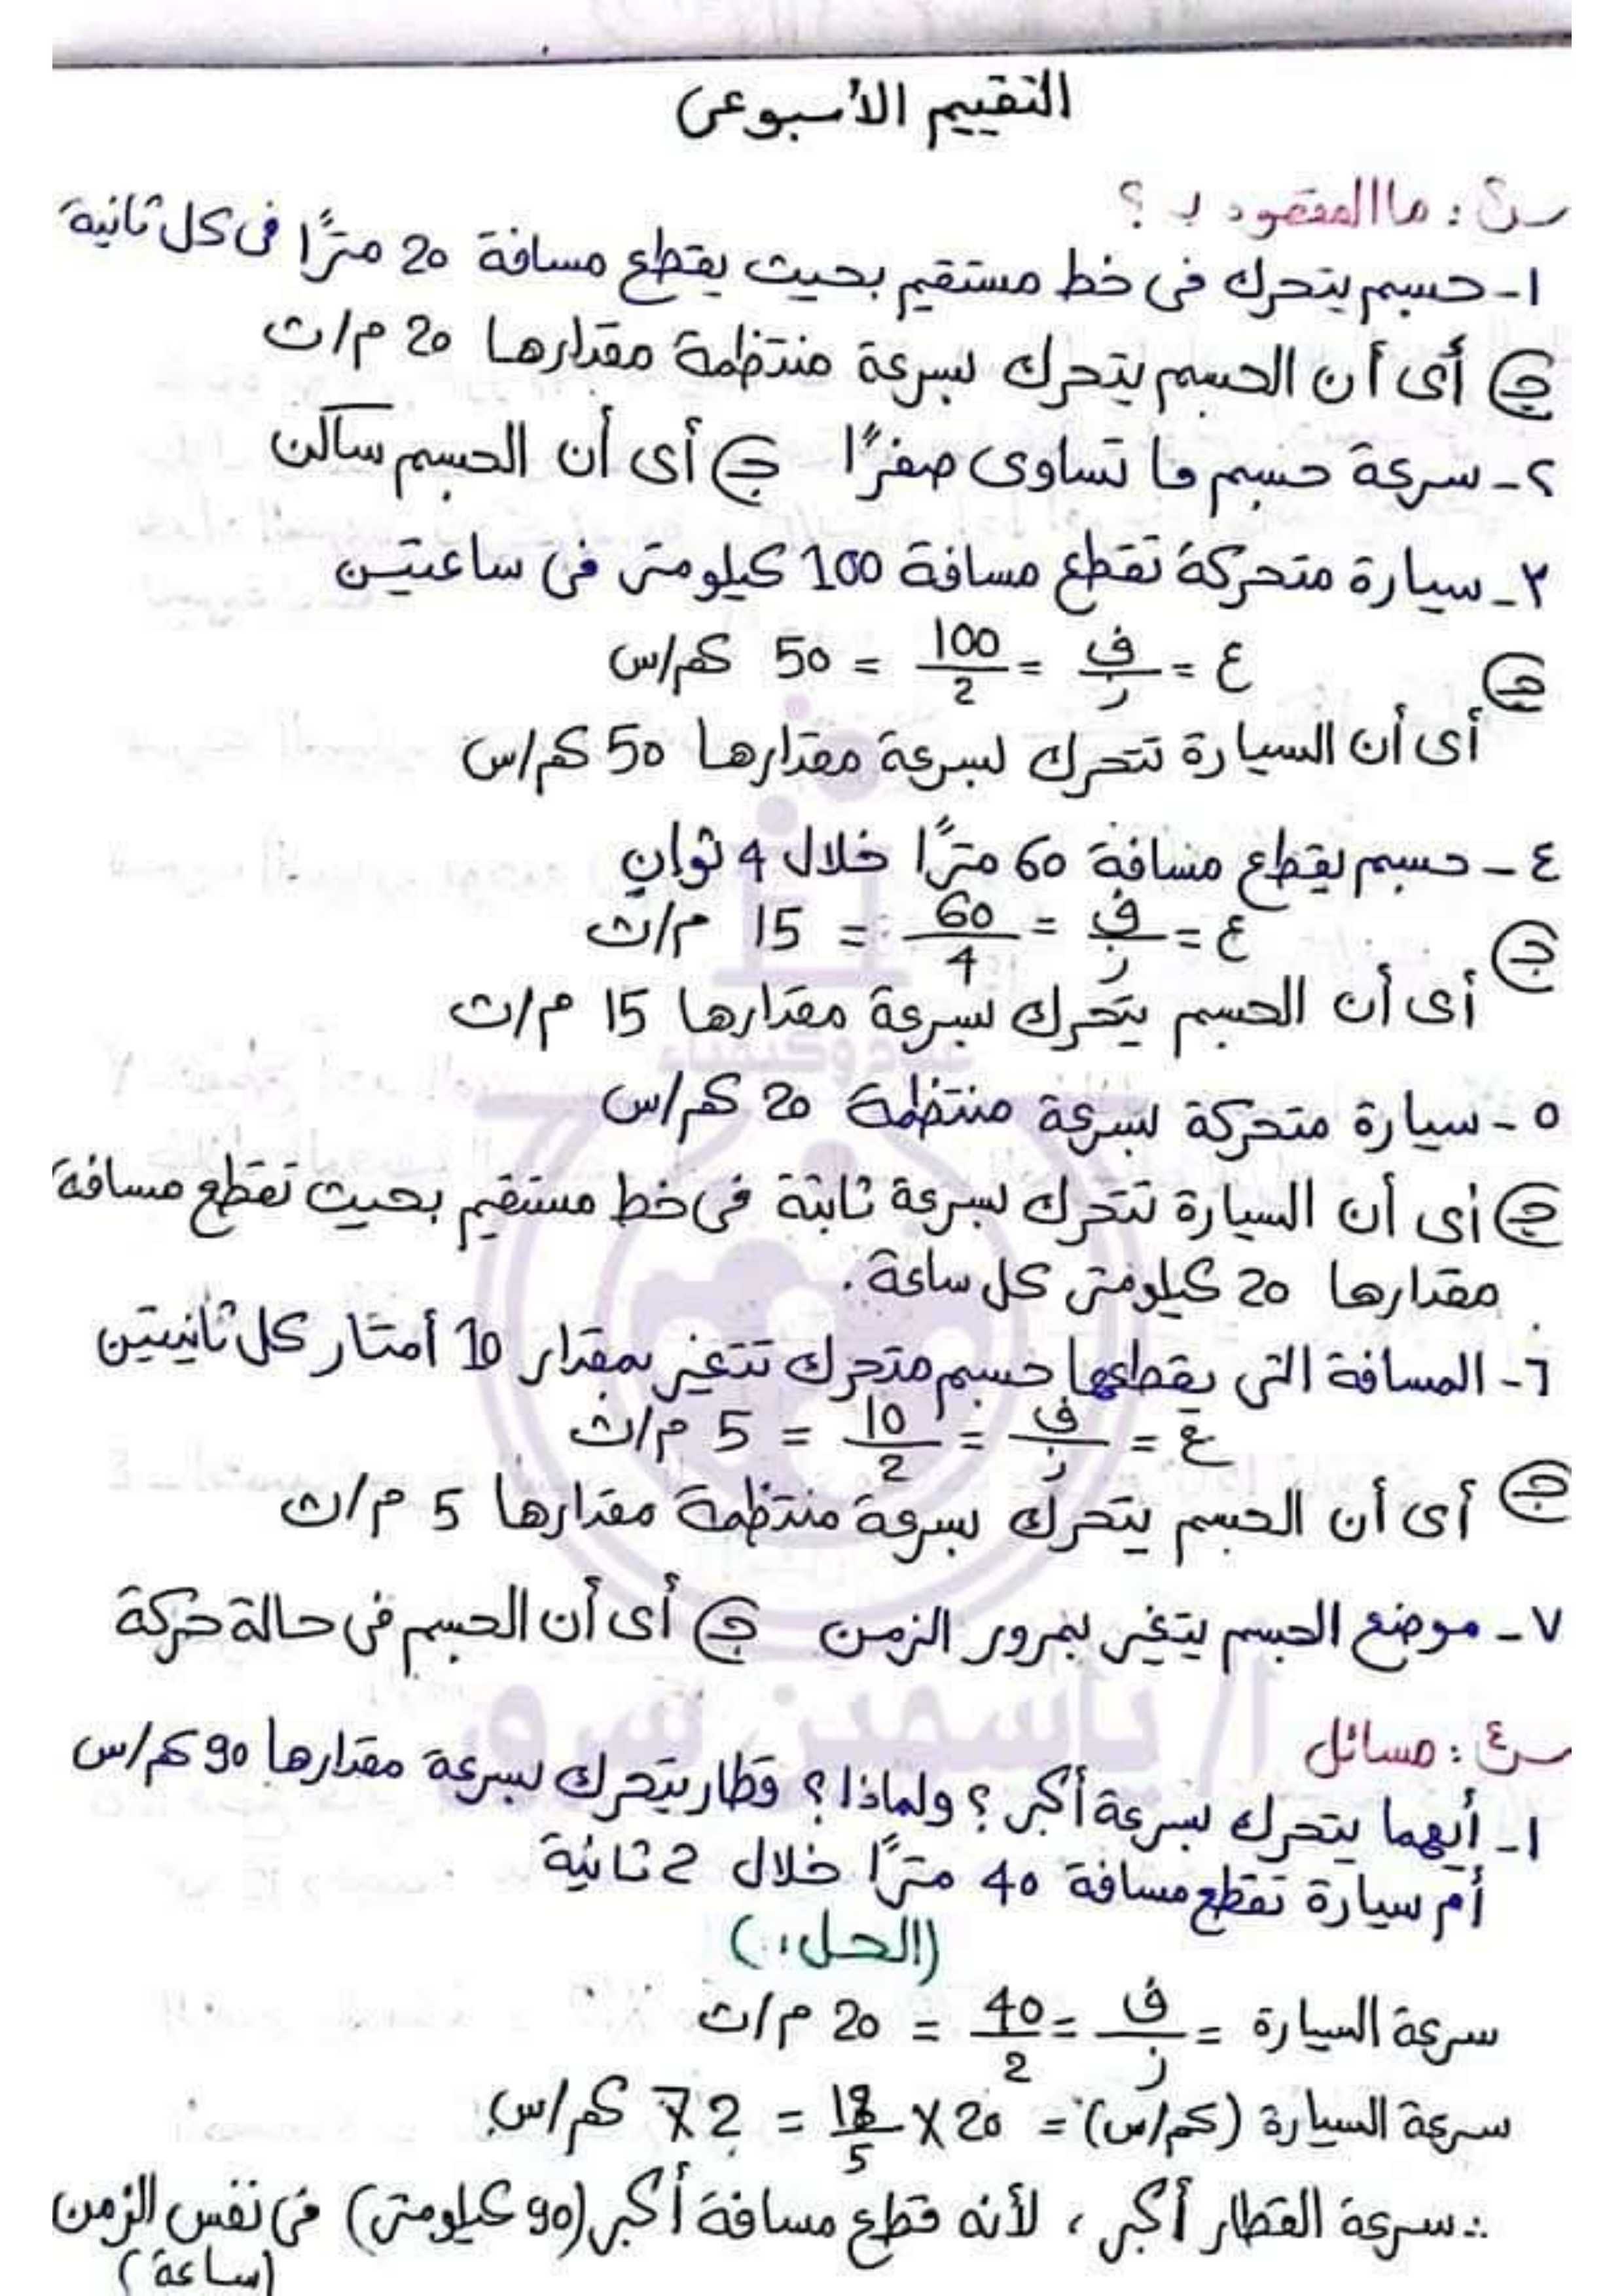 التقييم الأسبوعى
س٣ : ما المقصود بـ ؟
١- جسم يتحرك فى خط مستقيم بحيث يقطع مسافة 20 مترًا فى كل ثانية
ج أى أن الجسم يتحرك بسرعة منتظمة مقدارها 20 م/ث
٢- سرعة جسم ما تساوى صفرًا ج أى أن الجسم ساكن
٣- سيارة متحركة تقطع مسافة 100 كيلومتر فى ساعتين
ج ع = ف/ز = 100/2 = 50 كم/س
أى أن السيارة تتحرك بسرعة مقدارها 50 كم/س
٤- جسم يقطع مسافة 60 مترًا خلال 4 ثوانٍ
ج ع = ف/ز = 60/4 = 15 م/ث
أى أن الجسم يتحرك بسرعة مقدارها 15 م/ث
٥- سيارة متحركة بسرعة منتظمة 20 كم/س
ج أى أن السيارة تتحرك بسرعة ثابتة فى خط مستقيم بحيث تقطع مسافة
مقدارها 20 كيلومتر كل ساعة.
٦- المسافة التى يقطعها جسم متحرك تتغير بمقدار 10 أمتار كل ثانيتين
ع = ف/ز = 10/2 = 5 م/ث
ج أى أن الجسم يتحرك بسرعة منتظمة مقدارها 5 م/ث
٧- موضع الجسم يتغير بمرور الزمن ج أى أن الجسم فى حالة حركة
أ/ ياسمين
س٤ : مسائل
١- أيهما يتحرك بسرعة أكبر؟ ولماذا؟ قطار يتحرك بسرعة مقدارها 90 كم/س
أم سيارة تقطع مسافة 40 مترًا خلال 2 ثانية
(الحل:)
سرعة السيارة = ف/ز = 40/2 = 20 م/ث
سرعة السيارة (كم/س) = 20 X 18/5 = 72 كم/س
∴ سرعة القطار أكبر، لأنه قطع مسافة أكبر (90 كيلومتر) فى نفس الزمن
(ساعة)